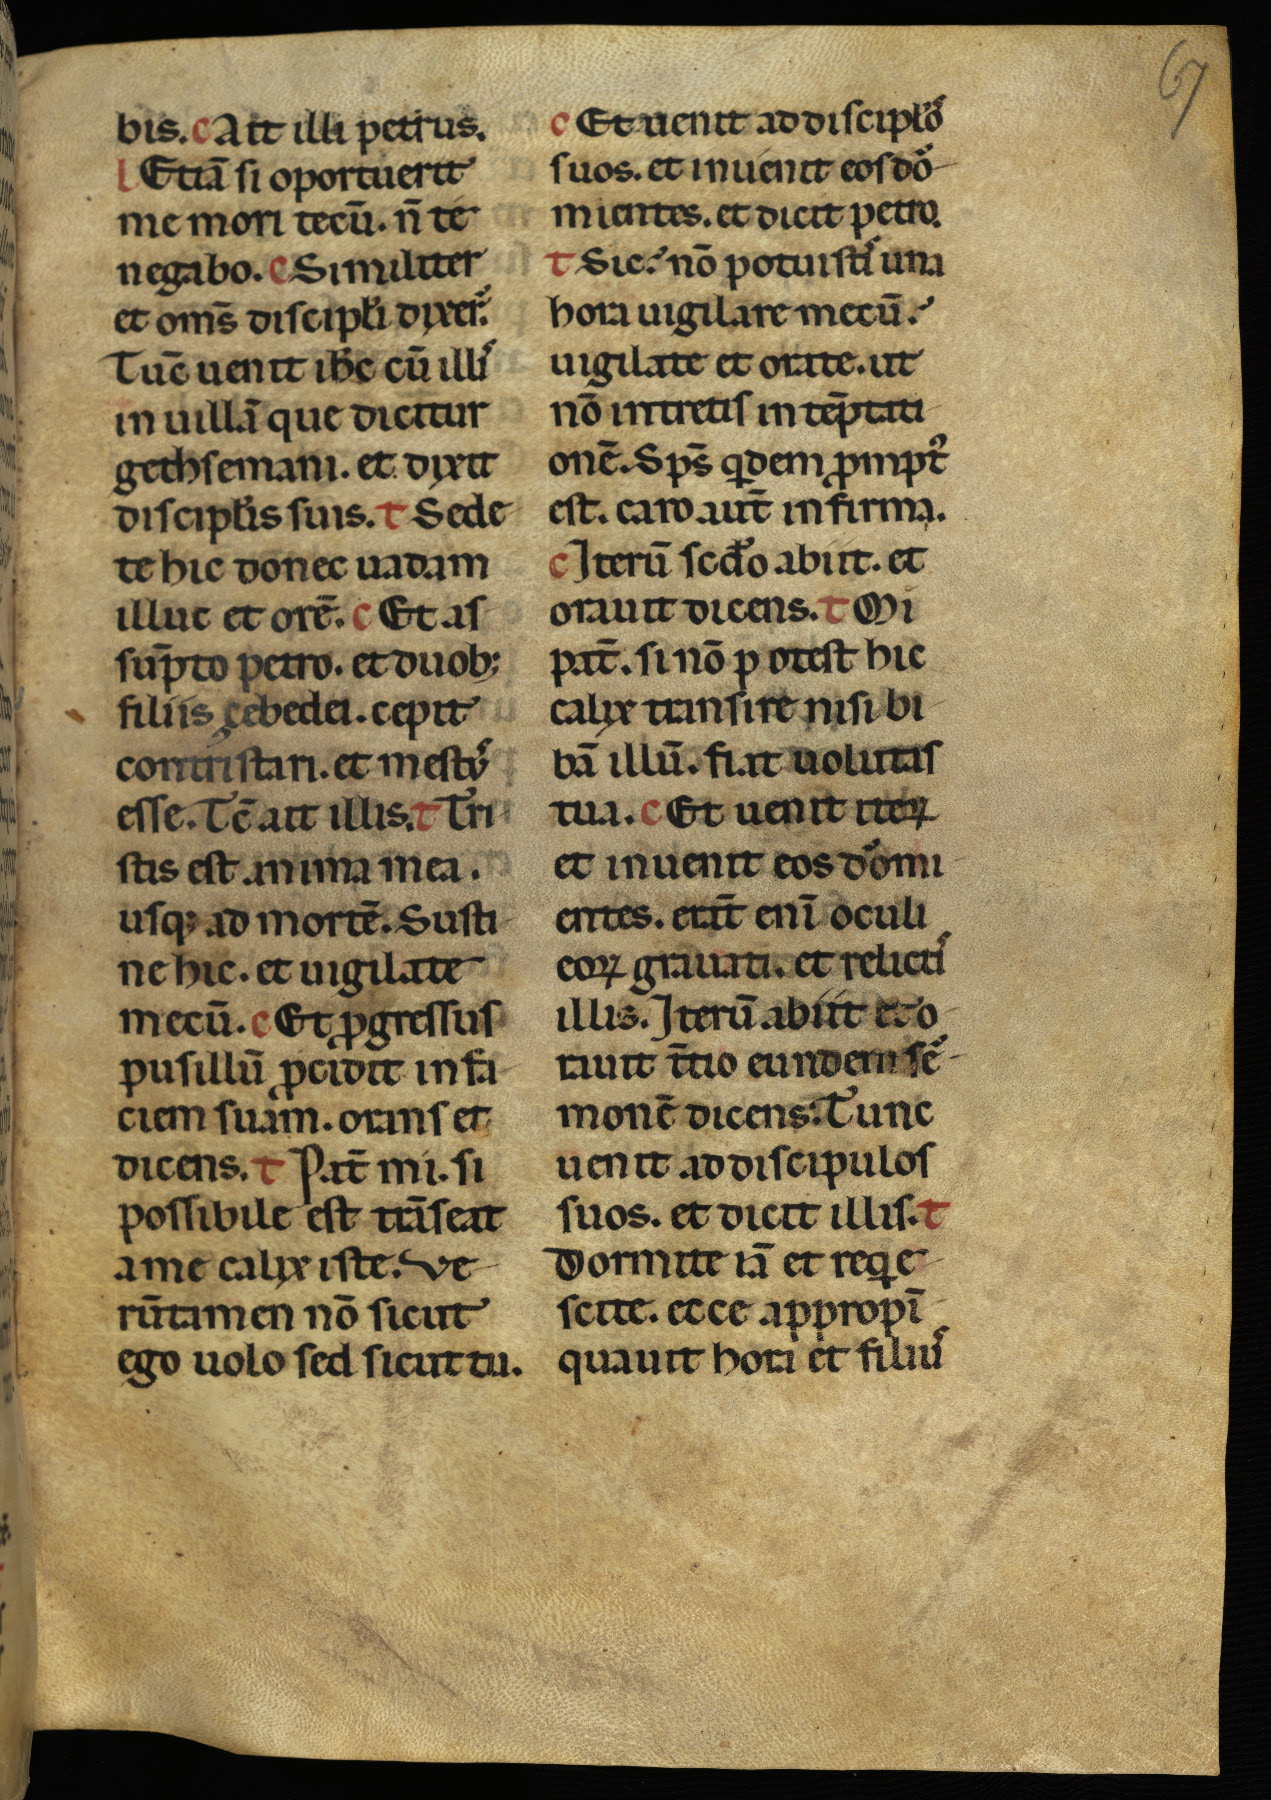 67
bis. c Ait illi petrus.
l Etiā si oportuerit
me mori tecū. n̄ te
negabo. c Similiter
et om̄s discipłi dixer̄.
Tūc uenit ih̄c cū illis
in uillā que dicitur
gethsemani. et dixit
discipłis suis. t Sede
te hic donec uadam
illuc et orē. c Et as
sūpto petro. et duob;
filiis çebedei. cepit
contristari. et mestus
esse. Tc̄ ait illis. t Tri
stis est anima mea.
usq; ad mortē. Susti
ne hic. et uigilate
mecū. c Et ꝓgressus
pusillū ꝓcidit in fa
ciem suam. orans et
dicens. t Pat̄ mi. si
possibile est trāseat
a me calix iste. Ve
rūtamen nō sicut
ego uolo sed sicut tu.
c Et uenit ad discipłos
suos. et inuenit eos dor
mientes. et dicit petro.
t Sic? nō potuistis una
hora uigilare mecū?
uigilate et orate. ut
nō intretis in tēptati
onē. Sps̄ qdem ꝓmptꝰ
est. caro aut̄ infirma.
c Iterū scdo abiit. et
orauit dicens. t Mi
pat̄. si nō potest hic
calix transire nisi bi
bā illū. fiat uolūtas
tua. c Et uenit iteꝝ
et inuenit eos dormi
entes. erāt enī oculi
eoꝝ grauati. et relictis
illis. Iterū abiit et o
rauit t̄tio eundem ser
monē dicens. Tunc
uenit ad discipulos
suos. et dicit illis. t
Dormite iā et reqe
scite. ecce appropī
quauit hora et filius